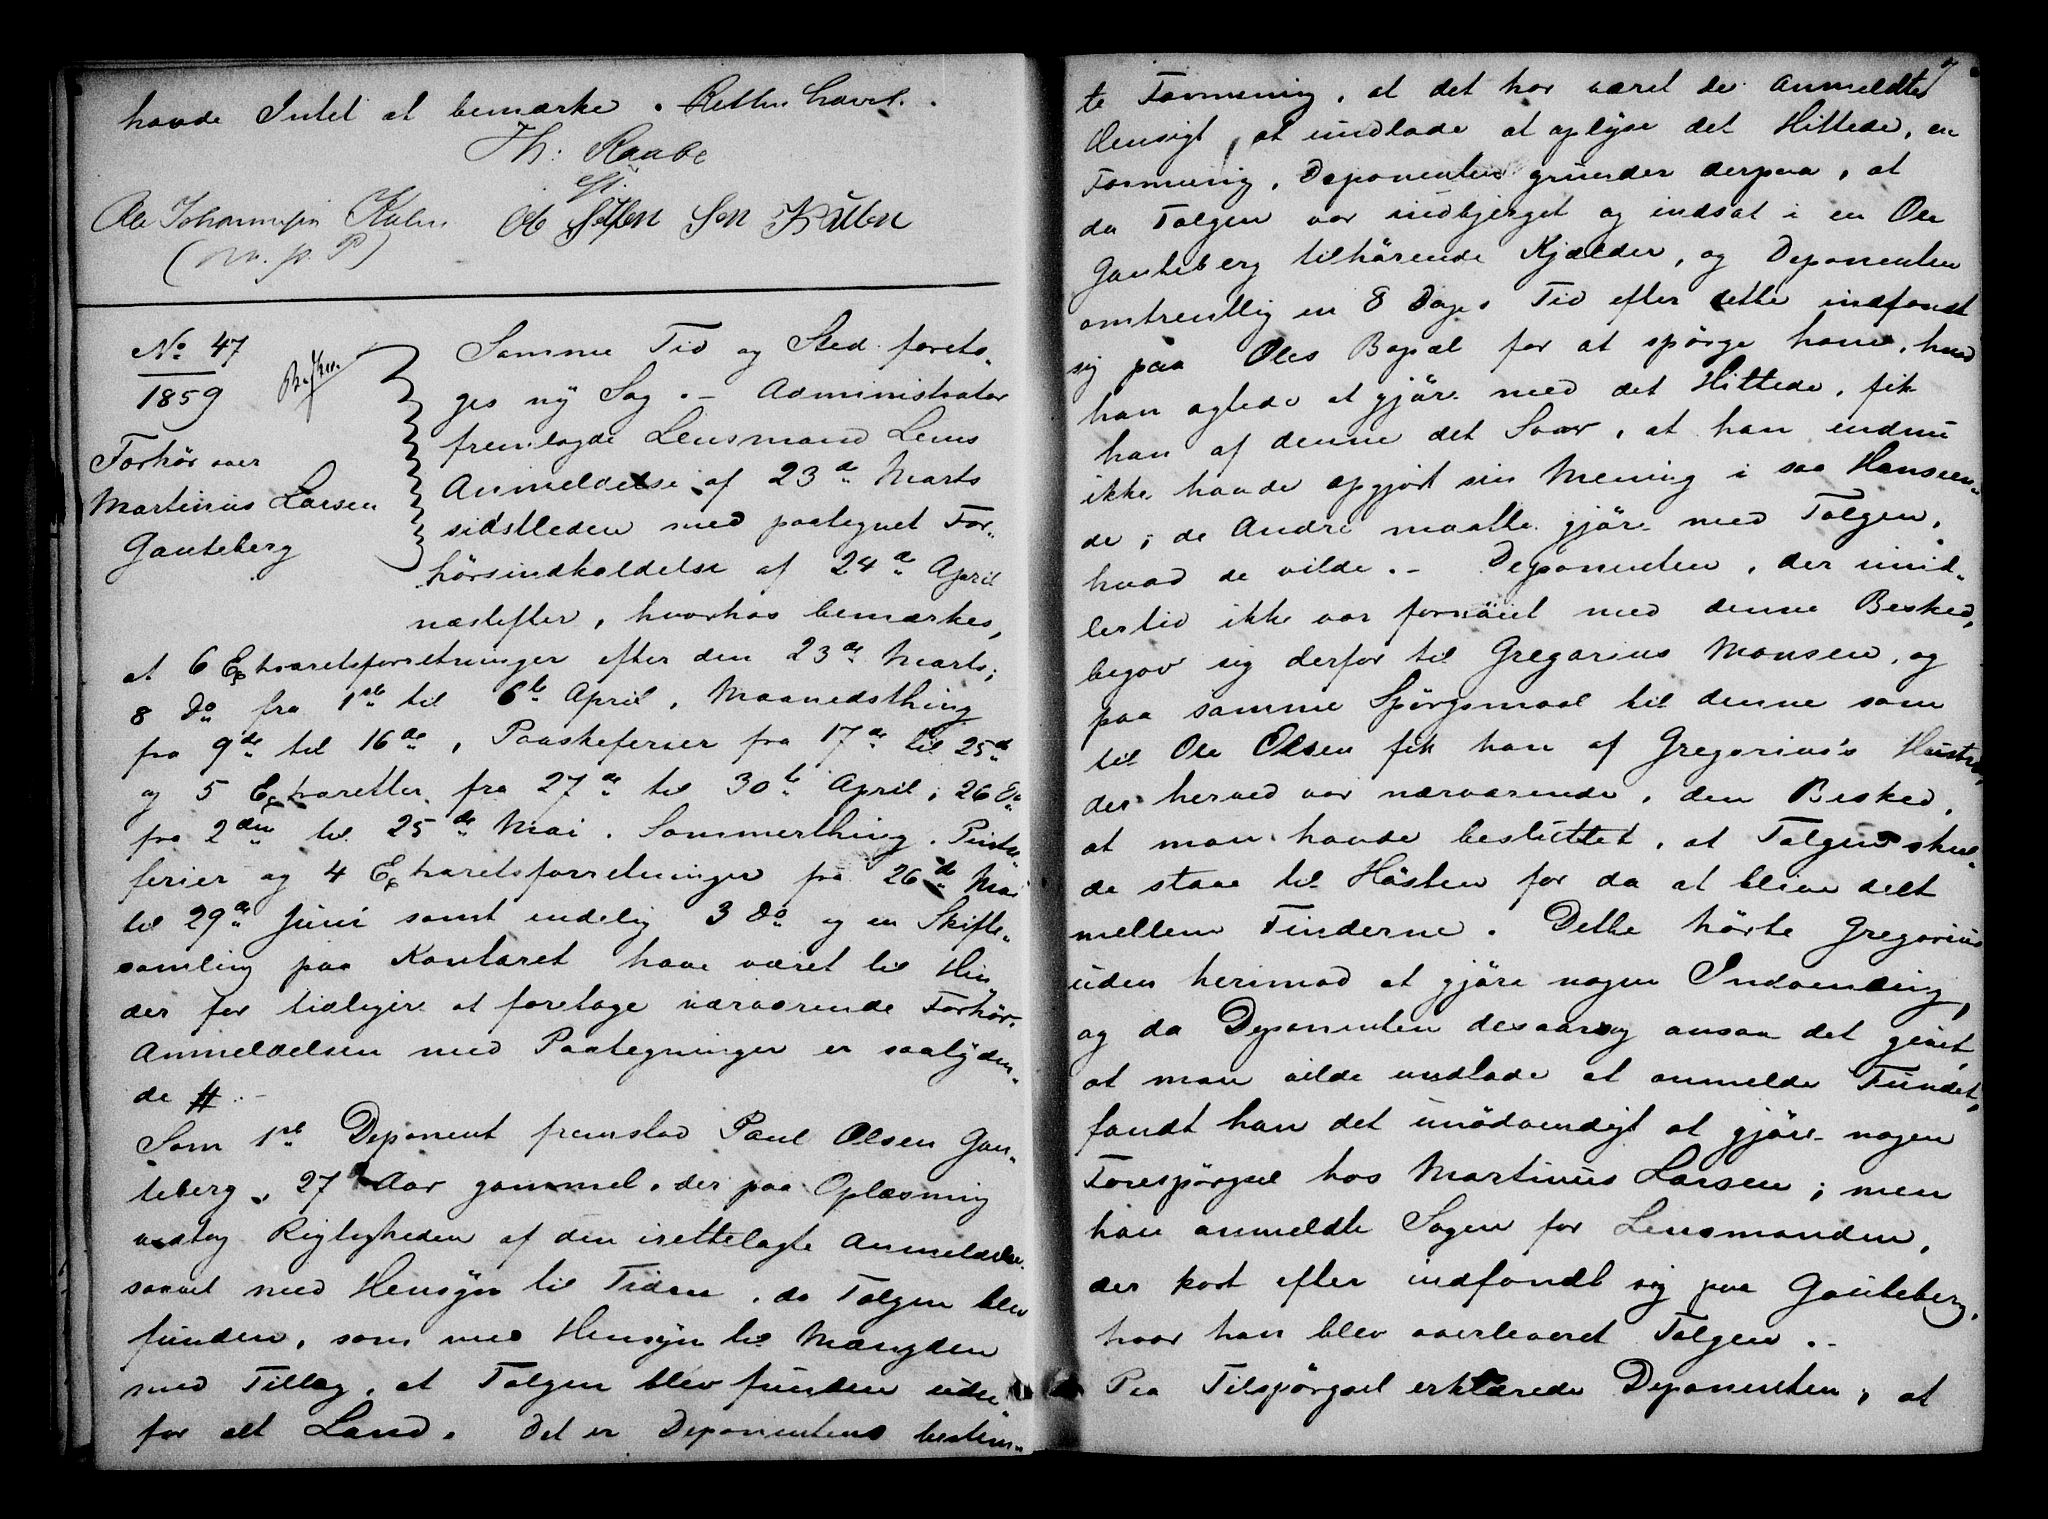 havde Intet at bemærke. Retten hævet.
Th: Raabe
Ole Johannesen
(m. p. P)
Ole
Sen
No 47
1859
Forhør over
Martinus Larsen
Gauteberg
Samme Tid og Sted foreto-
ges ny Sag. - Administrator
fremlagde Lensmand Lems
Anmeldelse af 23de Marts
sidstleden med paategnet For-
hørsindkaldelse af 24de April
næstefter, hvorhos bemærkes,
at 6 Extraretsforretninger efter den 23de Marts;
8 Do fra 1ste til 6te April, Maanedsthing
fra 9de til 16de, Paaskeferier fra 17de til 25de
og 5 Extraretter fra 27de til 30te April, 26 Do
fra 2den til 25de Mai. Sommerthing. Pintse-
ferier og 4 Extraretsforretninger fra 26de Mai
til 29de Juni samt endelig 3 Do og en Skifte-
samling paa Kontoret have været til Hin-
der for tidligere at foretage nærværende Forhør.
Anmeldelsen med Paategninger er saalyden-
de #. -
Som 1ste Deponent fremstod Paul Olsen Gau-
teberg, 27 Aar gammel, der paa Oplæsning
vedtog Rigtigheden af den irettelagte Anmeldelse
saavel med Hensyn til Tiden, da Talgen blev
funden, som med Hensyn til Mængden
med Tillæg, at Talgen blev funden uden-
for alt Land. Det er Deponentens bestem-
7
te Formening, at det har været de Anmeldtes
Hensigt, at undlade at oplyse det Hittede, en
Formening, Deponenten grunder derpaa, at
da Talgen var indbjerget og indsat i en Ole
Gauteberg tilhørende Kjælder, og Deponenten
omtrentlig en 8 Dages Tid efter dette indfandt
sig paa Oles Bopæl for at spørge ham, hvad
han agtede at gjøre med det Hittede, fik
han af denne det Svar, at han endnu
ikke havde opgjort sin Mening i saa Henseen-
de; de Andre maatte gjøre med Talgen,
hvad de vilde. - Deponenten, der imid-
lertid ikke var fornøiet med denne Besked,
begav sig derfor til Gregorius Monsen, og
paa samme Spørgsmaal til denne som
til Ole Olsen fik han af Gregorius's Hustru,
der herved var nærværende, den Besked,
at man havde besluttet, at Talgen skul-
de staae til Høsten for da at blive delt
mellem Finderne. Dette hørte Gregorius
uden herimod at gjøre nogen Indvending,
og da Deponenten desaarsag ansaa det givet,
at man vilde undlade at anmelde Fundet,
fandt han det unødvendigt at gjøre nogen
Forespørgsel hos Martinus Larsen; men
han anmeldte Sagen for Lensmanden,
der kort efter indfandt sig paa Gauteberg,
hvor han blev overleveret Talgen. -
Paa Tilspørgsel erklærede Deponenten, at